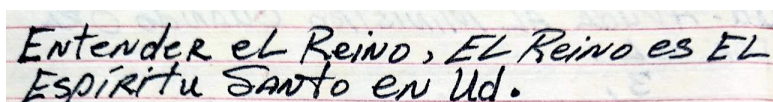 Entender el Reino, El Reino es El
Espíritu Santo en Ud.